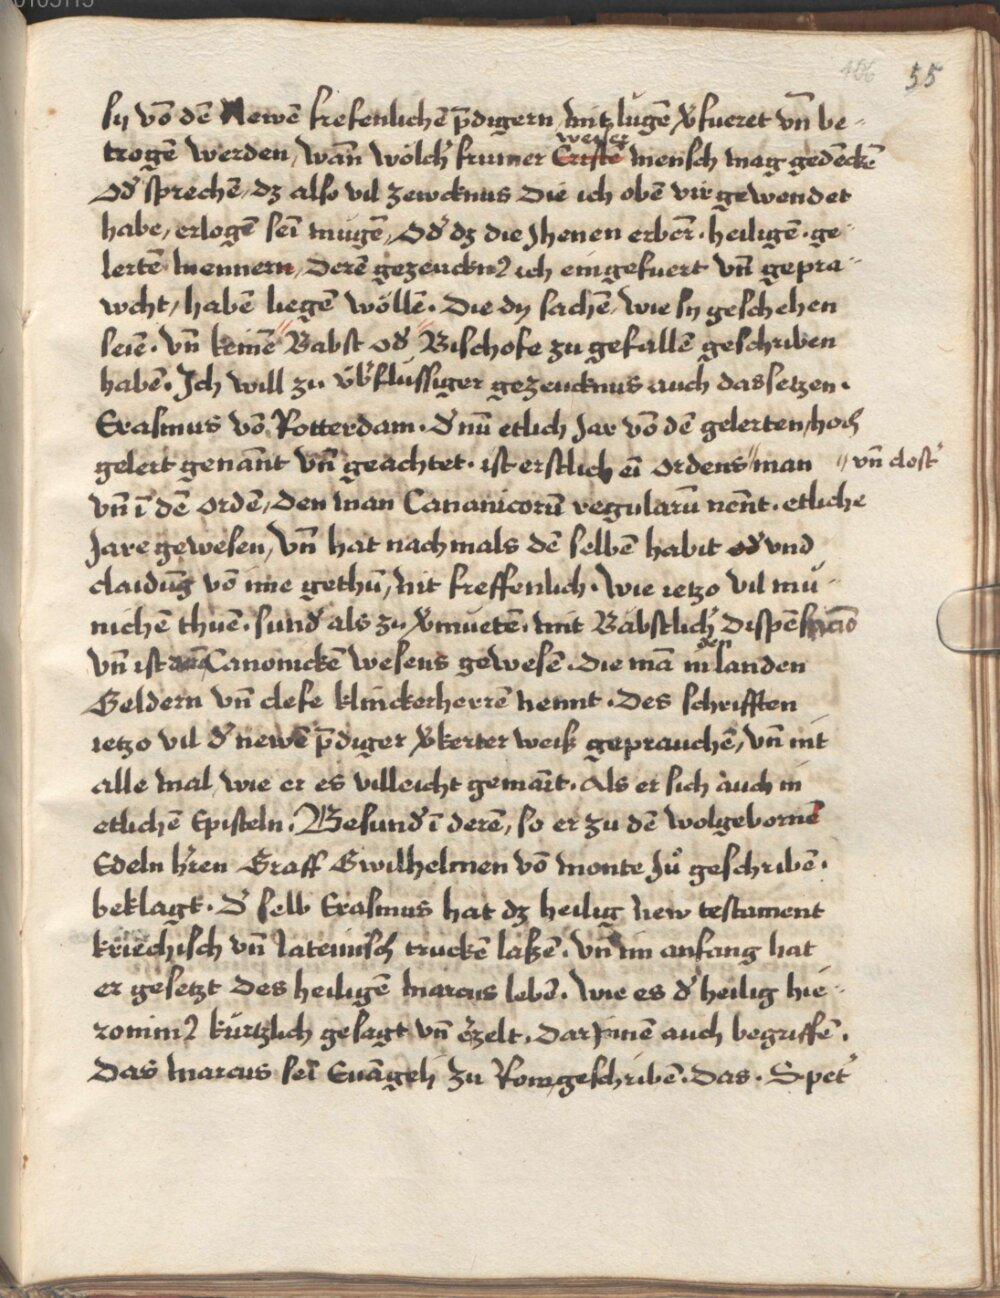 456 55
sy vō dē Newē frefenlichē p̄digern, mit lugē v̓fueret vn̄ be-
trogē werden, wān wölch̓ frumer Criste weiser mensch mag gedēckē
Od̓ sprechē, dz also vil zewcknus die ich obē vir gewendet
habe, erlogē sei̅ mugē, Od̓ dz die Jhenen erber̅. heiligē. ge-
lertē mennern, derē gezeuckn9 ich eingefuert vn̄ gepra-
wcht, habē liegē wöllē. Die dy sachē, wie sy geschehen
seiē. vn̄ keinē Babst od̓ Bischofe zu gefallē geschriben
habē. Jch will zu vb̓flüssiger gezeucknus auch das setzen.
Erasmus vō Rotterdam. d̓ nū etlich Jar vō dē gelerten, hoch
gelert genān̄t vn̄ geachtet. ist erstlich ei̅ ordens man vn̄ clost̓
vn̄ i̅ dē ordē, den man Cananicorū regularū nēnt. etliche
Jare gewesen, vn̄ hat nachmals dē selbē habit od̓ vnd
claidūg vō ime gethū, nit freffenlich. wie ietzo vil mu-
nichē thuē. sund̓ als zu v̓muetē. mit Bäbstlich̓ dispēsaciō
vn̄ ist Canonickē wesens gewesē. die mā in den landen
Geldern vn̄ clefe klinckerherrē nennt. Des schrifften
ietzo vil d̓ newē p̄diger v̓kerter weiß geprauchē, vn̄ nit
alle mal, wie er es villeicht gemai̅t. Als er sich auch in
etlichē Episteln. Besund̓ i̅ derē, so er zu dē wolgebornē
Edeln h̓ren Graff Gwilhelmen vō monte Ju̓ geschribē.
beklagt. D̓ selb Erasmus hat dz heilig new testament
kriechisch vn̄ lateinisch truckē laßē. vn̄ im anfang hat
er gesetzt des heiligē marcus lebē. wie es d̓ heilig hie-
ronim9 kürtzlich gesagt vn̄ e̓zelt. Dar jnnē auch begriffē.
Das marcus sei̅ Euāgeli zu Rom geschribē. das. S. pet̓